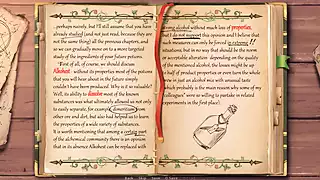 , perhaps naively, but I'll still assume that you have
already studied (and not just read, because they are
not the same thing) all the previous chapters, and
so we can gradually move on to a more targeted
study of the ingredients of your future potions.
"First of all, of course, we should discuss
Alkohest - without its properties most of the potions
that you will hear about in the future simply
couldn't have been produced. Why is it so valuable?
Well, its ability to dissolve most of the known
substances was what ultimately allowed us not only
to easily separate, for example,
from other ore and dirt, but also had helped us to learn
the properties of a wide variety of substances.
It is worth mentioning that among a certain part
of the alchemical community there is an opinion
that in its absence Alkohest can be replaced with
strong alcohol without much loss of properties,
but I do not support this opinion and I believe that
such measures can only be forced in extreme !!
situations, but in no way that should be the norm
or acceptable alteration: depending on the quality
of the mentioned alcohol, the losses might be up
to half of product properties or even turn the whole
brew in just alcohol mix with unusual taste
which probably is the main reason why some of
colleagues" were so willing to partake in related
experiments in the first place).